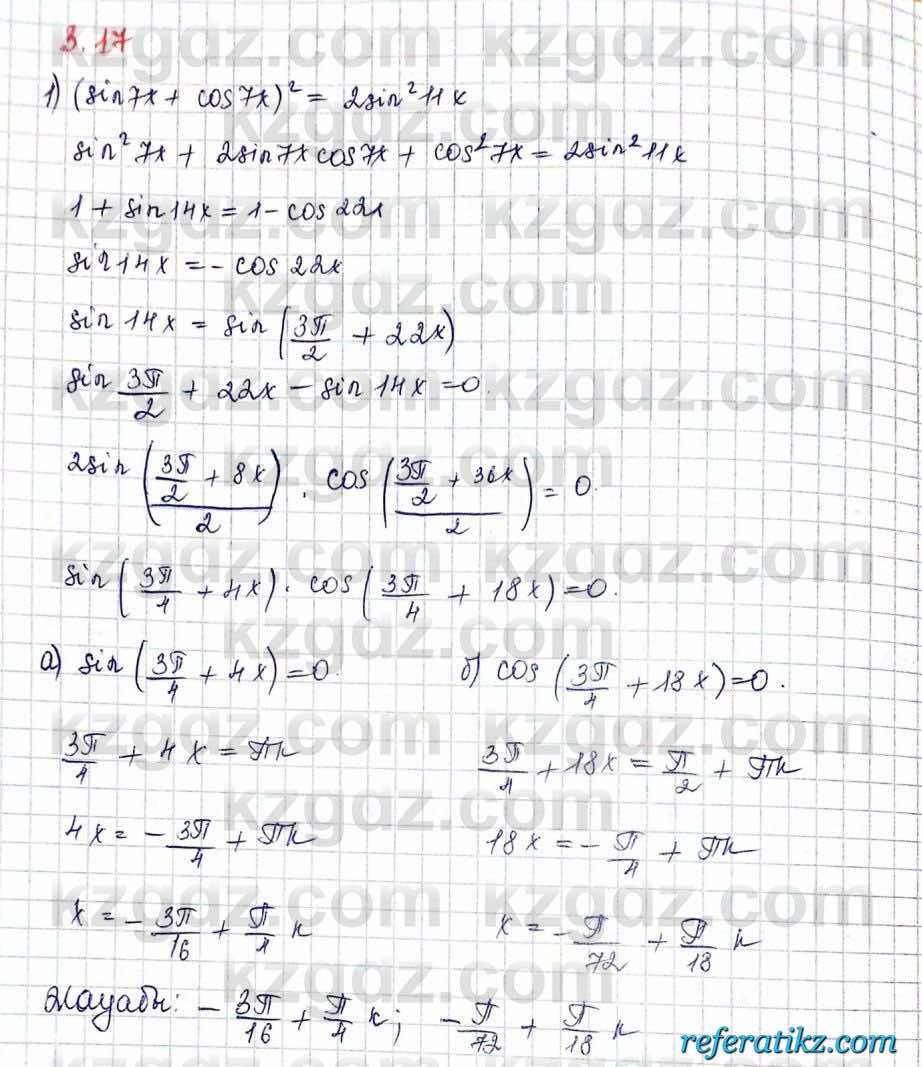 3.17
1) (sin7x + cos7x)² = 2sin²11x
sin²7x + 2sin7x cos7x + cos²7x = 2sin²11x
1 + sin14x = 1 - cos22x
sin14x = - cos22x
sin14x = sin(3π/2 + 22x)
sin 3π/2 + 22x - sin14x = 0.
2sin (3π/2 + 8x)/2 · cos (3π/2 + 36x)/2 = 0.
sin(3π/4 + 4x) · cos(3π/4 + 18x) = 0.
а) sin(3π/4 + 4x) = 0. б) cos(3π/4 + 18x) = 0.
3π/4 + 4x = πk 3π/4 + 18x = π/2 + πk
4x = - 3π/4 + πk 18x = - π/4 + πk
x = - 3π/16 + π/4 k x = - π/72 + π/18 k
Жауабы: - 3π/16 + π/4 k; - π/72 + π/18 k
kzgdz.com
referatikz.com